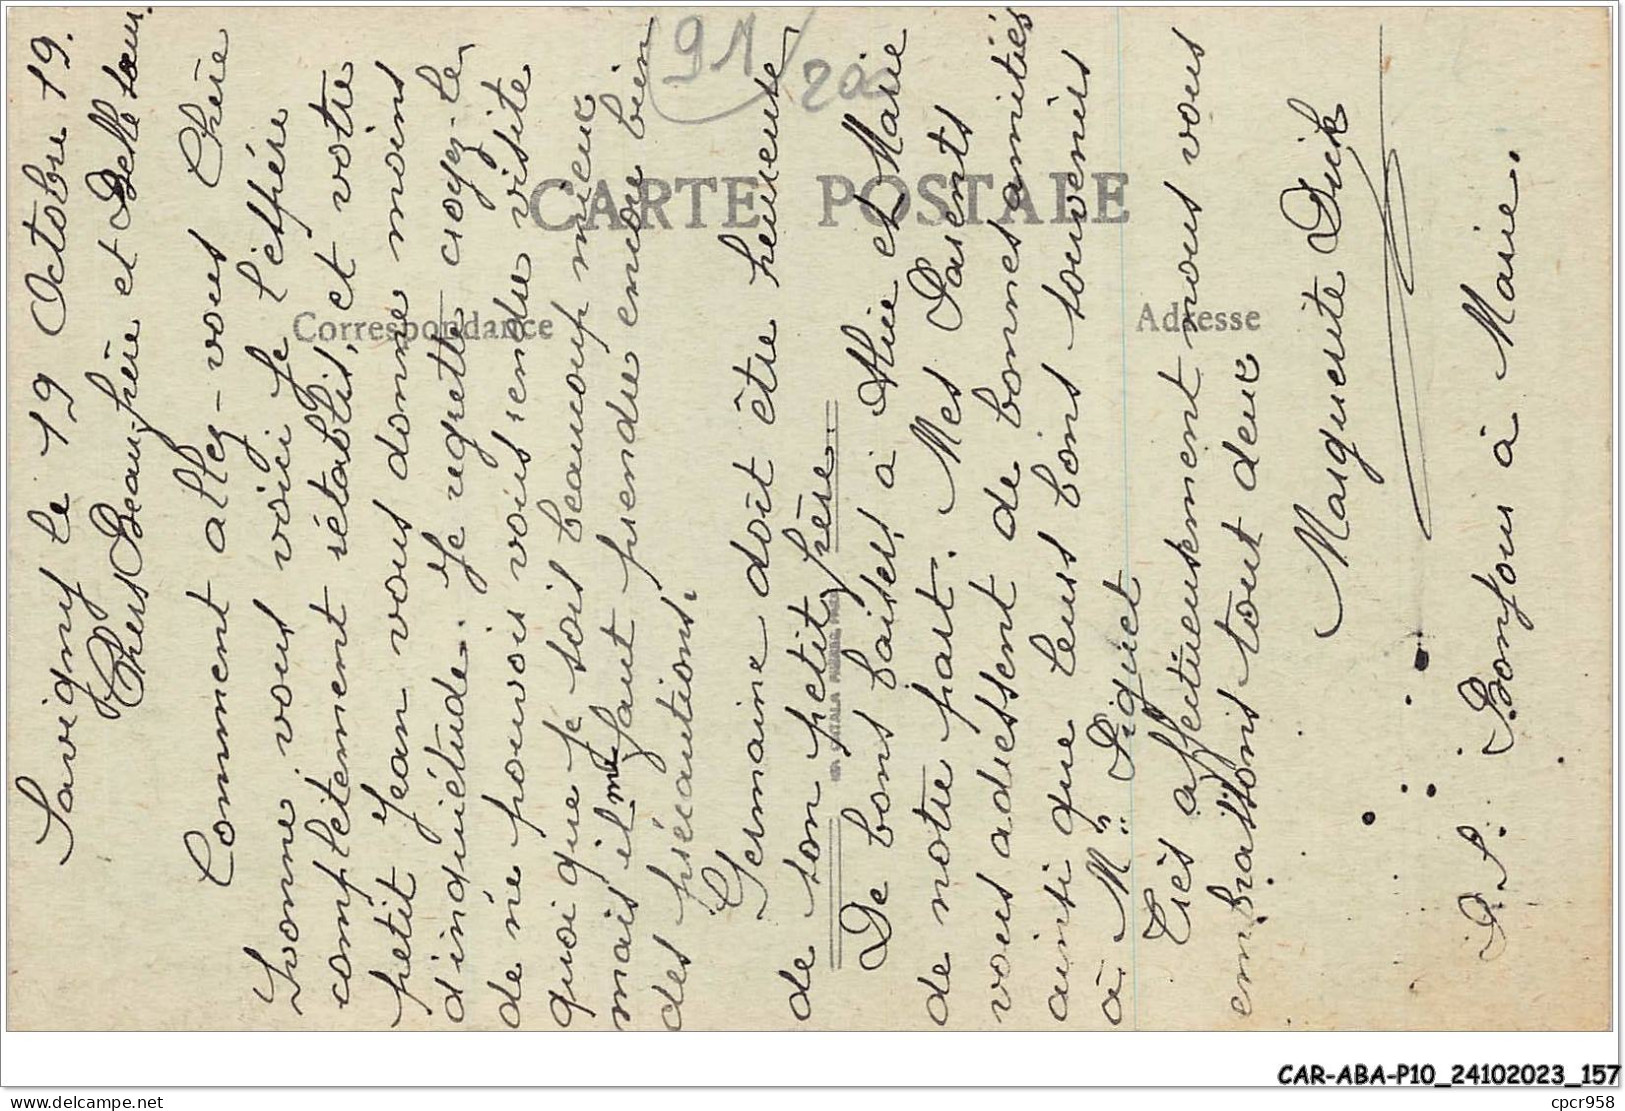 Savigny le 19 Octobre 19.
Chers Beau-frère et Belle sœur.
Comment allez-vous Chère
Yvonne vous voici je l'espère
complètement rétablis, et votre
petit Jean vous donne moins
d'inquiétude. Je regrette croyez-le
de ne pouvoir vous rendre visite
quoi que je sois beaucoup mieux
mais il me faut prendre encore bien
des précautions.
Germaine doit être heureuse
de son petit frère.
De bons baisers à Mie et Marie
de notre part. Mes Parents
vous adressent de bonnes amitiés
ainsi que leurs bons souvenirs
à M" Piquet
Très affectueusement nous vous
embrassons tout deux
Marguerite
P.S. Bonjour à Marie.
91 / 20
CARTE POSTALE
Correspondance
Adresse
CAR-ABA-P10_24102023_157
delcampe.net
cpcr958